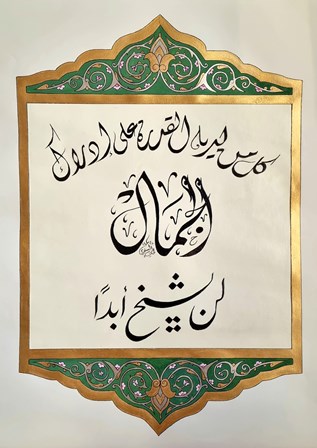 كل من لديه القدرة على إدراك
الجمال
لن يشيخ أبدًا